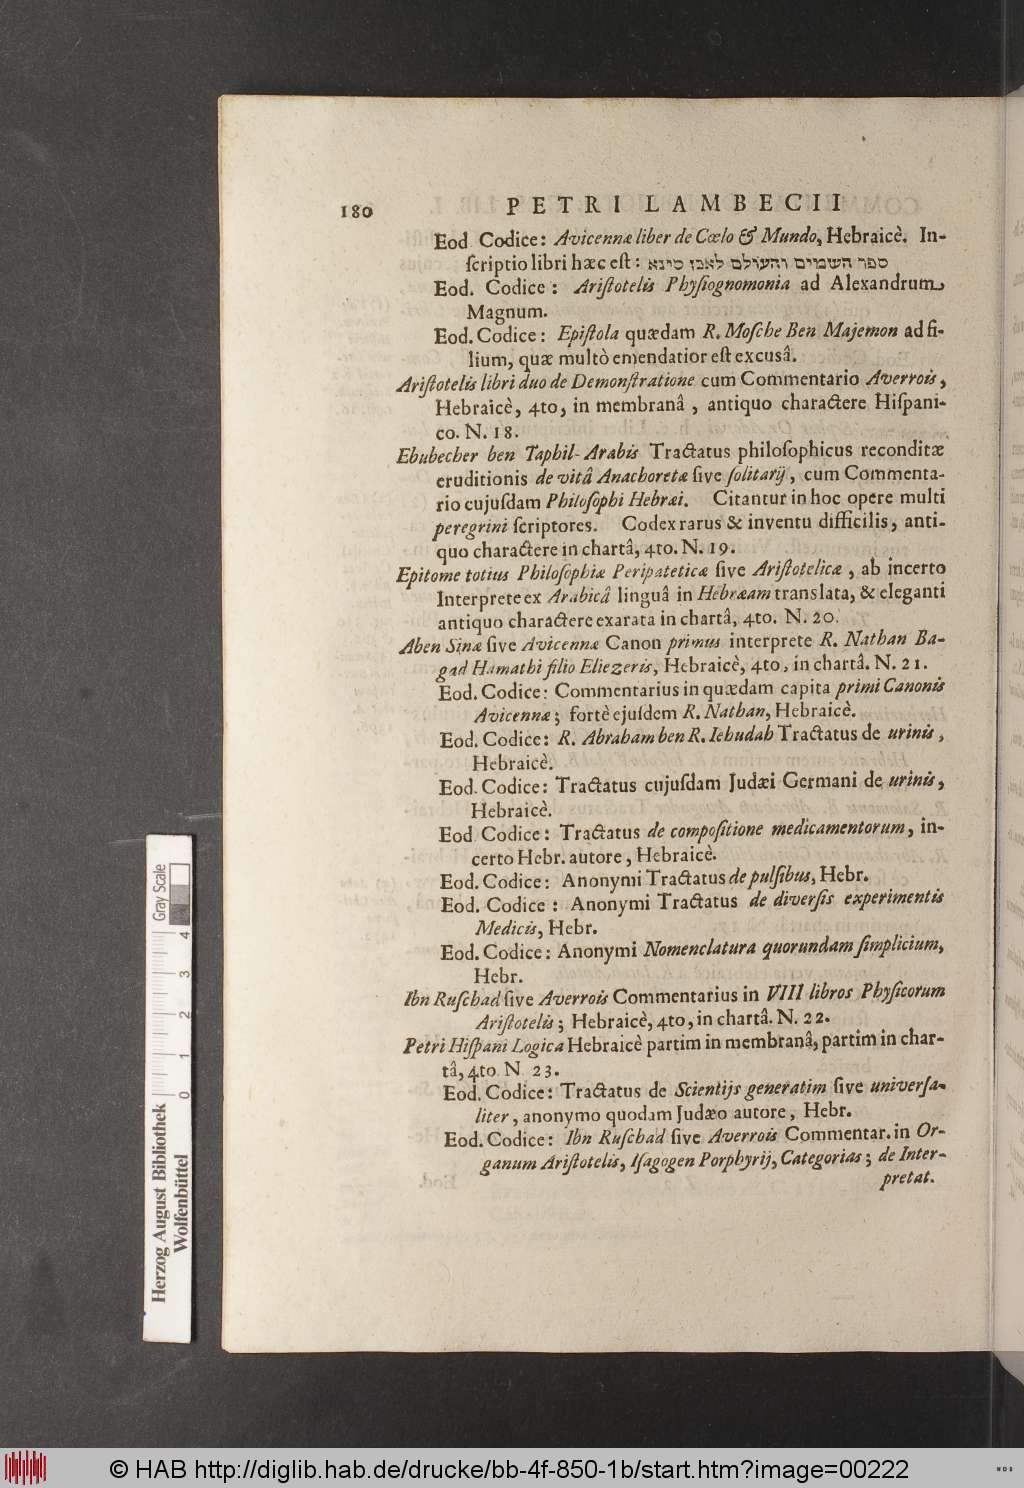 180 PETRI LAMBECII
Eod. Codice: Avicennæ liber de Cœlo & Mundo, Hebraicè. In-
ſcriptio libri hæc eſt: ספר השמים והעולם לאבן סינא
Eod. Codice: Ariſtotelis Phyſiognomonia ad Alexandrum
Magnum.
Eod. Codice: Epiſtola quædam R. Moſche Ben Majemon ad fi-
lium, quæ multò emendatior eſt excusâ.
Ariſtotelis libri duo de Demonſtratione cum Commentario Averrois,
Hebraicè, 4to, in membranâ, antiquo charactere Hiſpani-
co. N. 18.
Ebubecher ben Taphil-Arabis Tractatus philoſophicus reconditæ
eruditionis de vitâ Anachoretæ ſive ſolitarij, cum Commenta-
rio cujuſdam Philoſophi Hebræi. Citantur in hoc opere multi
peregrini ſcriptores. Codex rarus & inventu difficilis, anti-
quo charactere in chartâ, 4to. N. 19.
Epitome totius Philoſophiæ Peripateticæ ſive Ariſtotelicæ, ab incerto
Interprete ex Arabicâ linguâ in Hebræam translata, & eleganti
antiquo charactere exarata in chartâ, 4to. N. 20.
Aben Sinæ ſive Avicennæ Canon primus interprete R. Nathan Ba-
gad Hamathi filio Eliezeris, Hebraicè, 4to, in chartâ. N. 21.
Eod. Codice: Commentarius in quædam capita primi Canonis
Avicennæ; fortè ejuſdem R. Nathan, Hebraicè.
Eod. Codice: R. Abraham ben R. Iehudah Tractatus de urinis,
Hebraicè.
Eod. Codice: Tractatus cujuſdam Judæi Germani de urinis,
Hebraicè.
Eod Codice: Tractatus de compoſitione medicamentorum, in-
certo Hebr. autore, Hebraicè.
Eod. Codice: Anonymi Tractatus de pulſibus, Hebr.
Eod. Codice: Anonymi Tractatus de diverſis experimentis
Medicis, Hebr.
Eod. Codice: Anonymi Nomenclatura quorundam ſimplicium,
Hebr.
Ibn Ruſchad ſive Averrois Commentarius in VIII libros Phyſicorum
Ariſtotelis; Hebraicè, 4to, in chartâ. N. 22.
Petri Hiſpani Logica Hebraicè partim in membranâ, partim in char-
tâ, 4to N 23.
Eod. Codice: Tractatus de Scientijs generatim ſive univerſa-
liter, anonymo quodam Judæo autore, Hebr.
Eod. Codice: Ibn Ruſchad ſive Averrois Commentar. in Or-
ganum Ariſtotelis, Iſagogen Porphyrij, Categorias; de Inter-
pretat.
Gray Scale
0 1 2 3 4
Herzog August Bibliothek
Wolfenbüttel
© HAB http://diglib.hab.de/drucke/bb-4f-850-1b/start.htm?image=00222